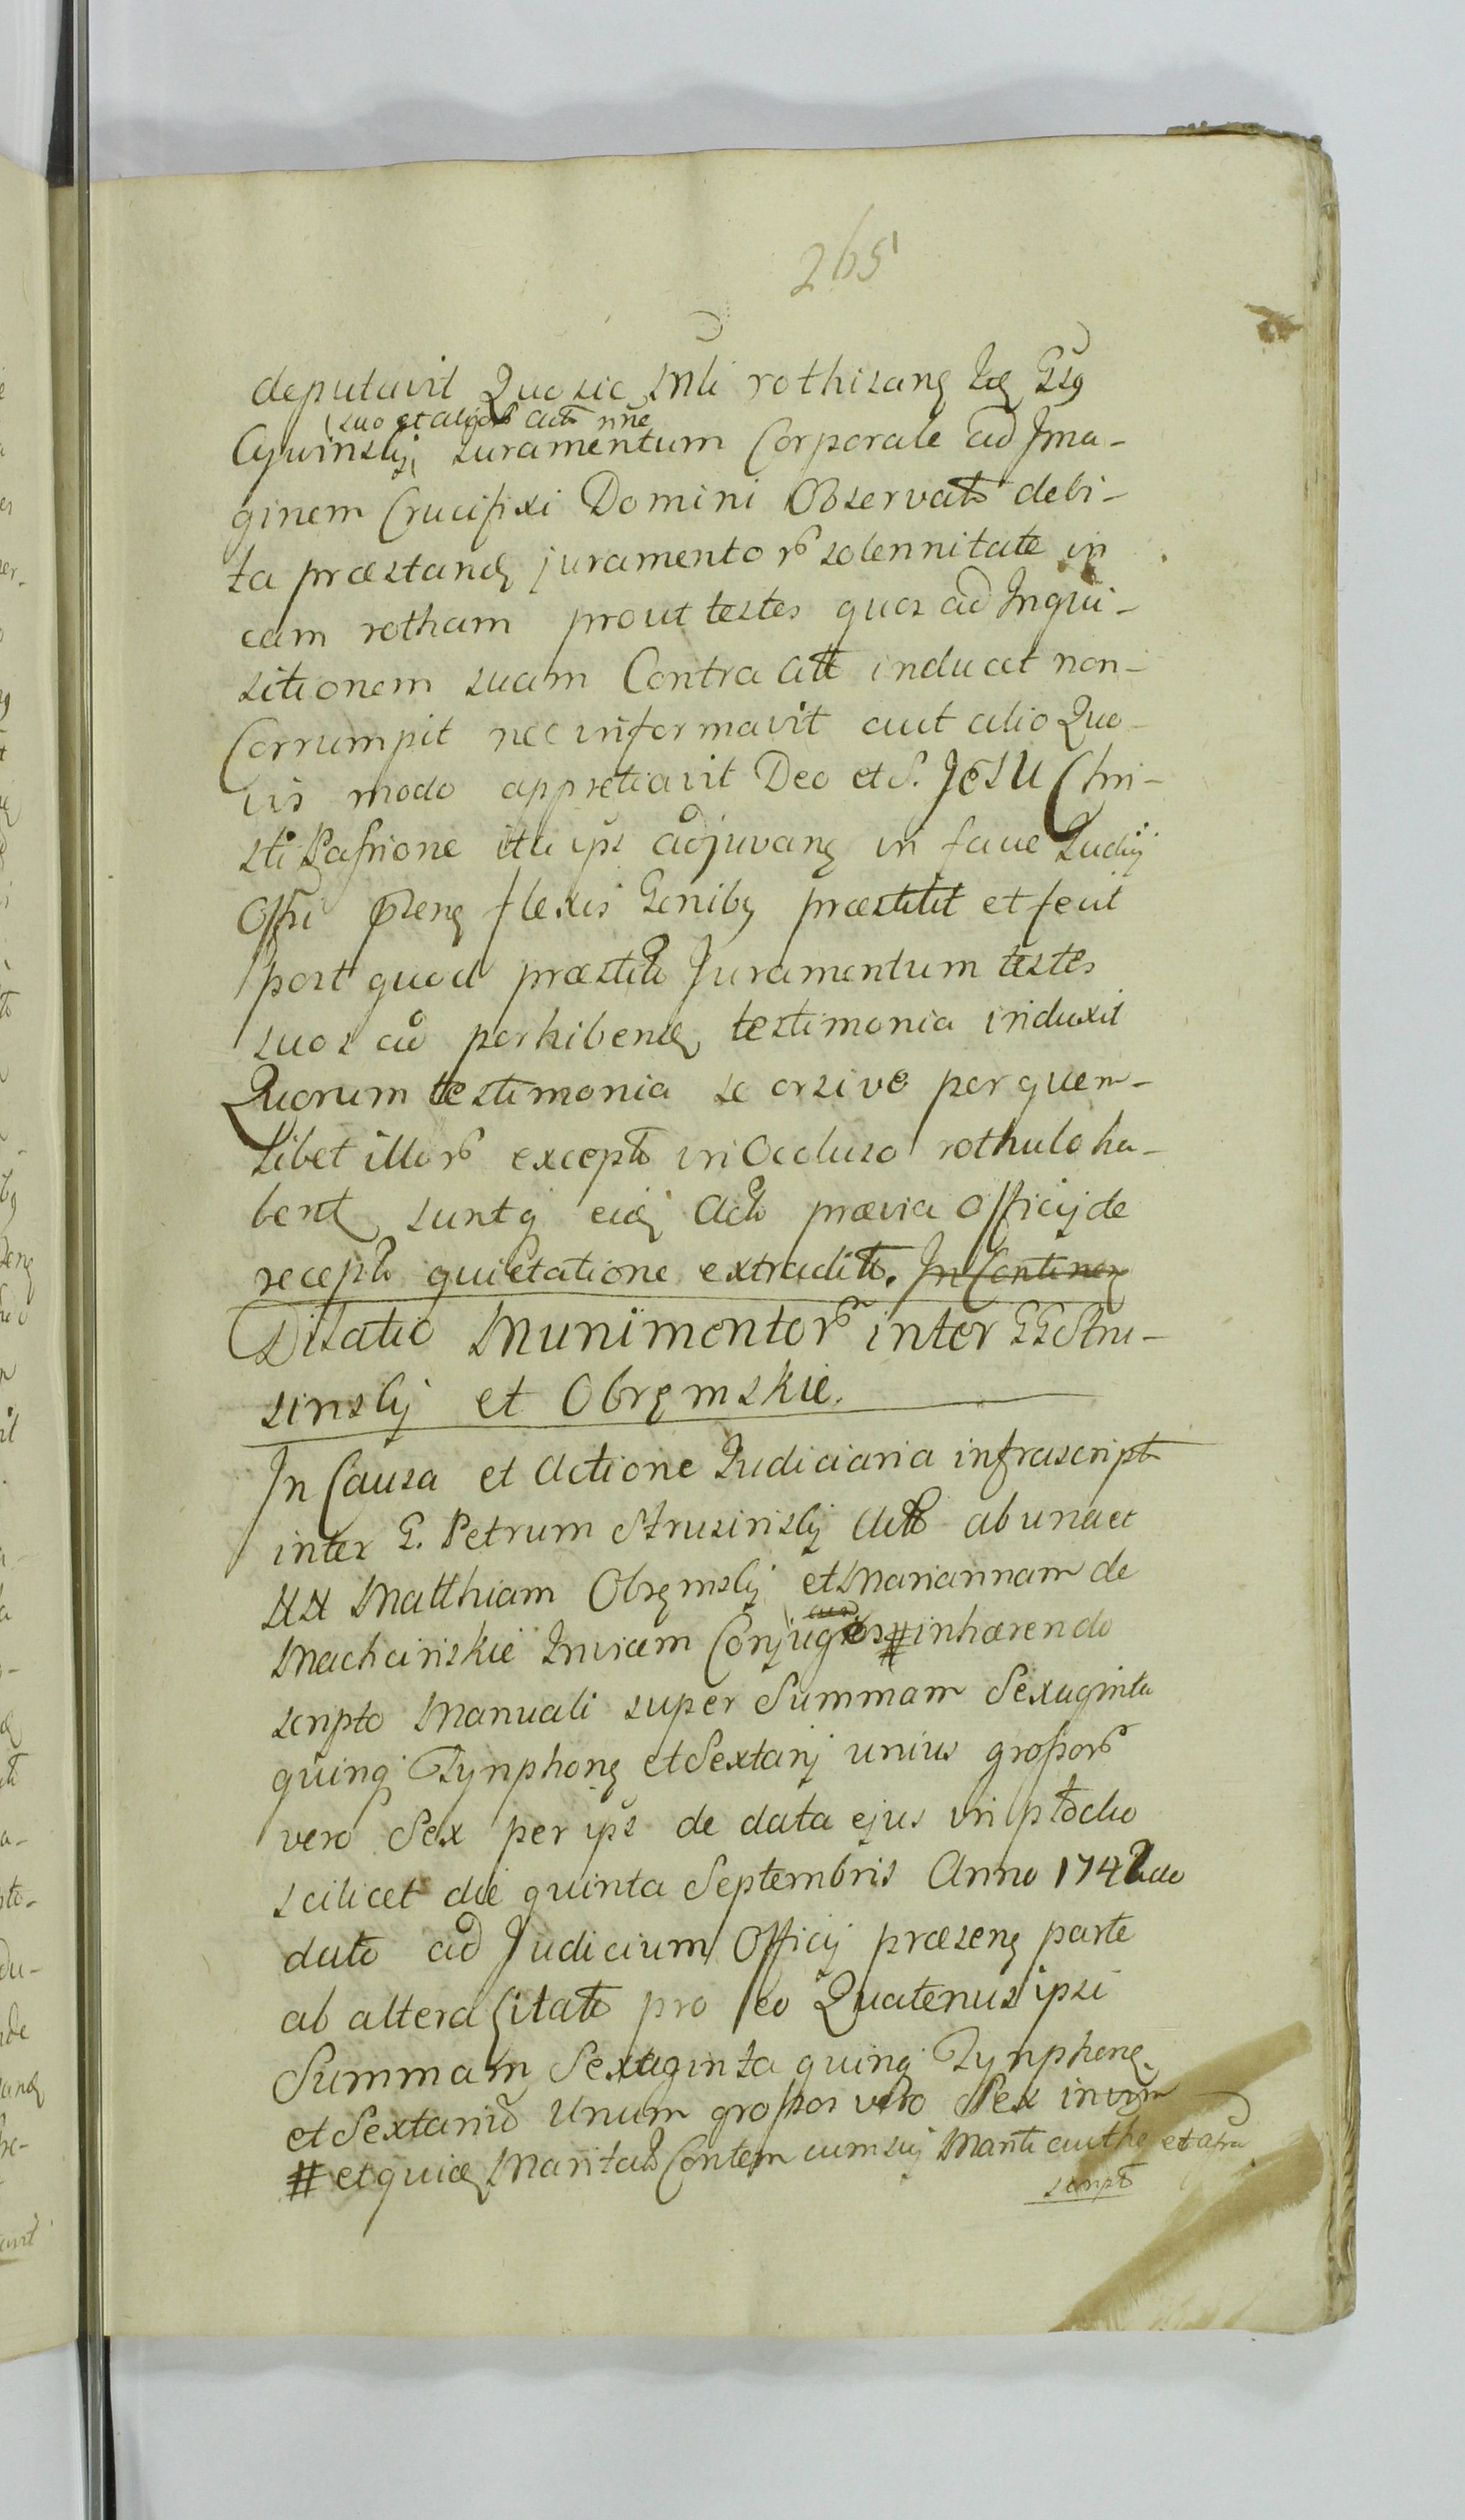 265
deputavit Quo sic Mli rothisanę Idę Gsg
suo et aliorb Actt nne
Cywinsky Juramentum Corporale ad Ima-
ginem Crucifixi Domini Observato debi-
ta præstandę juramentorb solennitate in
eam rotham prout testes quos ad Inqui-
sitionem suam Contra Att inducet non-
Corrumpit nec informavit aut alio Quo-
vis modo appretiavit Deo et S. JESU Chri-
sti Passione ita ips adjuvanę in facie Judij
Offi præsenę flexis Geniby præstitit et fecit
post quod præstito Juramentum testes
suos ad perhibendę testimonia induxit
Quorum testimonia seorsive per quem-
libet illorb excepto in Occluso rothulo ha-
bent suntq eidę Acto prævia Officij de
recepto quietatione extradito. In Continen
Dilatio Munimentorb inter GG Stru-
sinsky et Obręmskie.
In Causa et Actione Judiciaria infrascript
inter G. Petrum Strusinsky Actt ab una et
NN Matthiam Obręmsky et Mariannam de
Machcinskie Invicem Conjuges # inhærendo
scripto Manuali super Summam Sexaginta
quinq Tynphonę et Sextarij unius grossorb
vero Sex per ips de data ejus in ptochio
scilicet die quinta Septembris Anno 1742do
dato ad Judicium Officij præsenę parte
ab altera Citato pro eo Quatenus ipsi
Summam Sexaginta quinq Tynphonę
et Sextarium Unum grossos vero Sex in vim
# et quidę Maritato Contem cum sui Mariti authę et assa
scripto